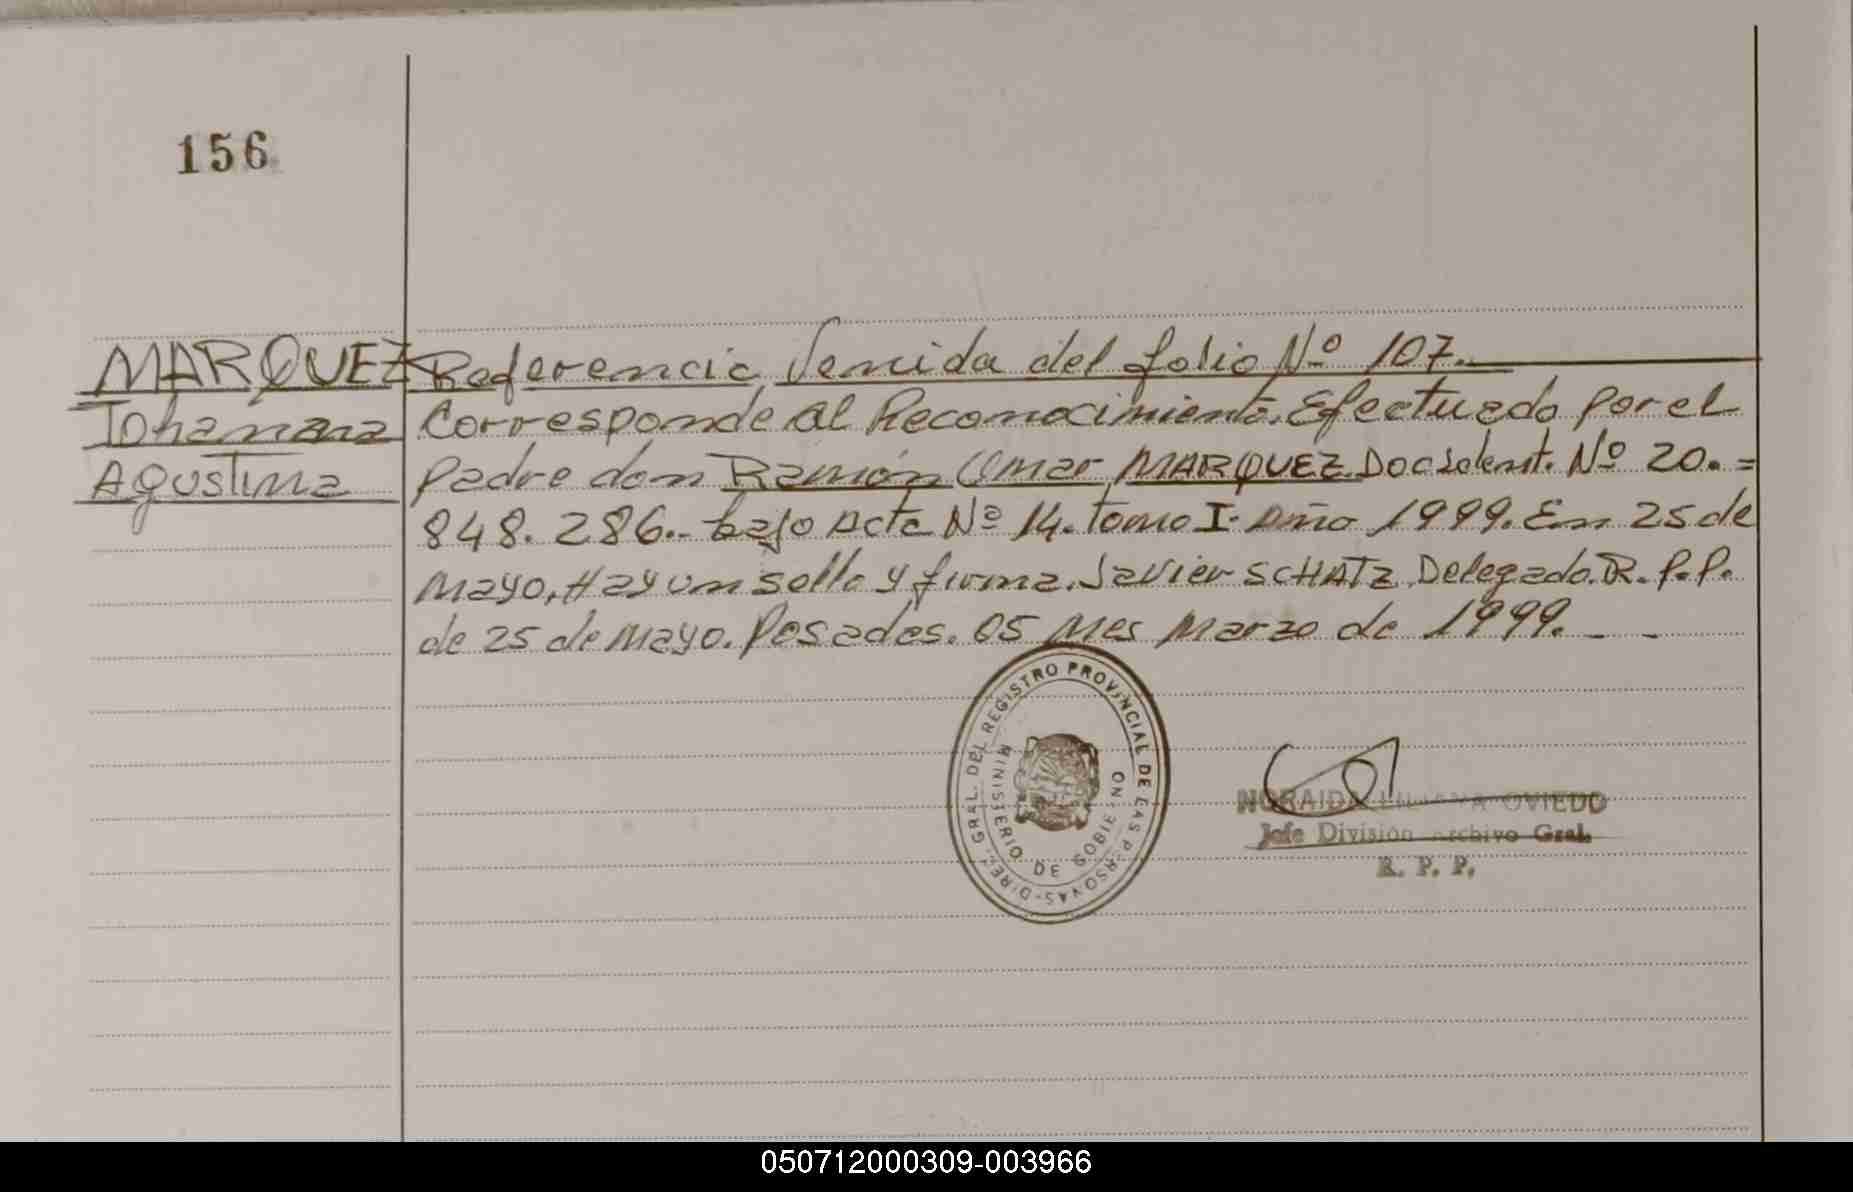 156
MARQUEZ
Johanana
Agustina
Referencia Venida del folio Nº 107.
Corresponde al Reconocimiento. Efectuado por el
padre don Ramón Omar MARQUEZ Doc Ident. Nº 20.=
848.286.- bajo Acta Nº 14. tomo I. Año 1999. En 25 de
Mayo, Hay un sello y firma. Javier SCHATZ. Delegado. R.P.P.
de 25 de Mayo. Posadas. 05 Mes Marzo de 1999. - -
DIREC. GRAL. DEL REGISTRO PROVINCIAL DE LAS PERSONAS-
MINISTERIO DE GOBIERNO
NORAIDA OVIEDO
Jefe División Archivo Gral.
R. P. P.
050712000309-003966